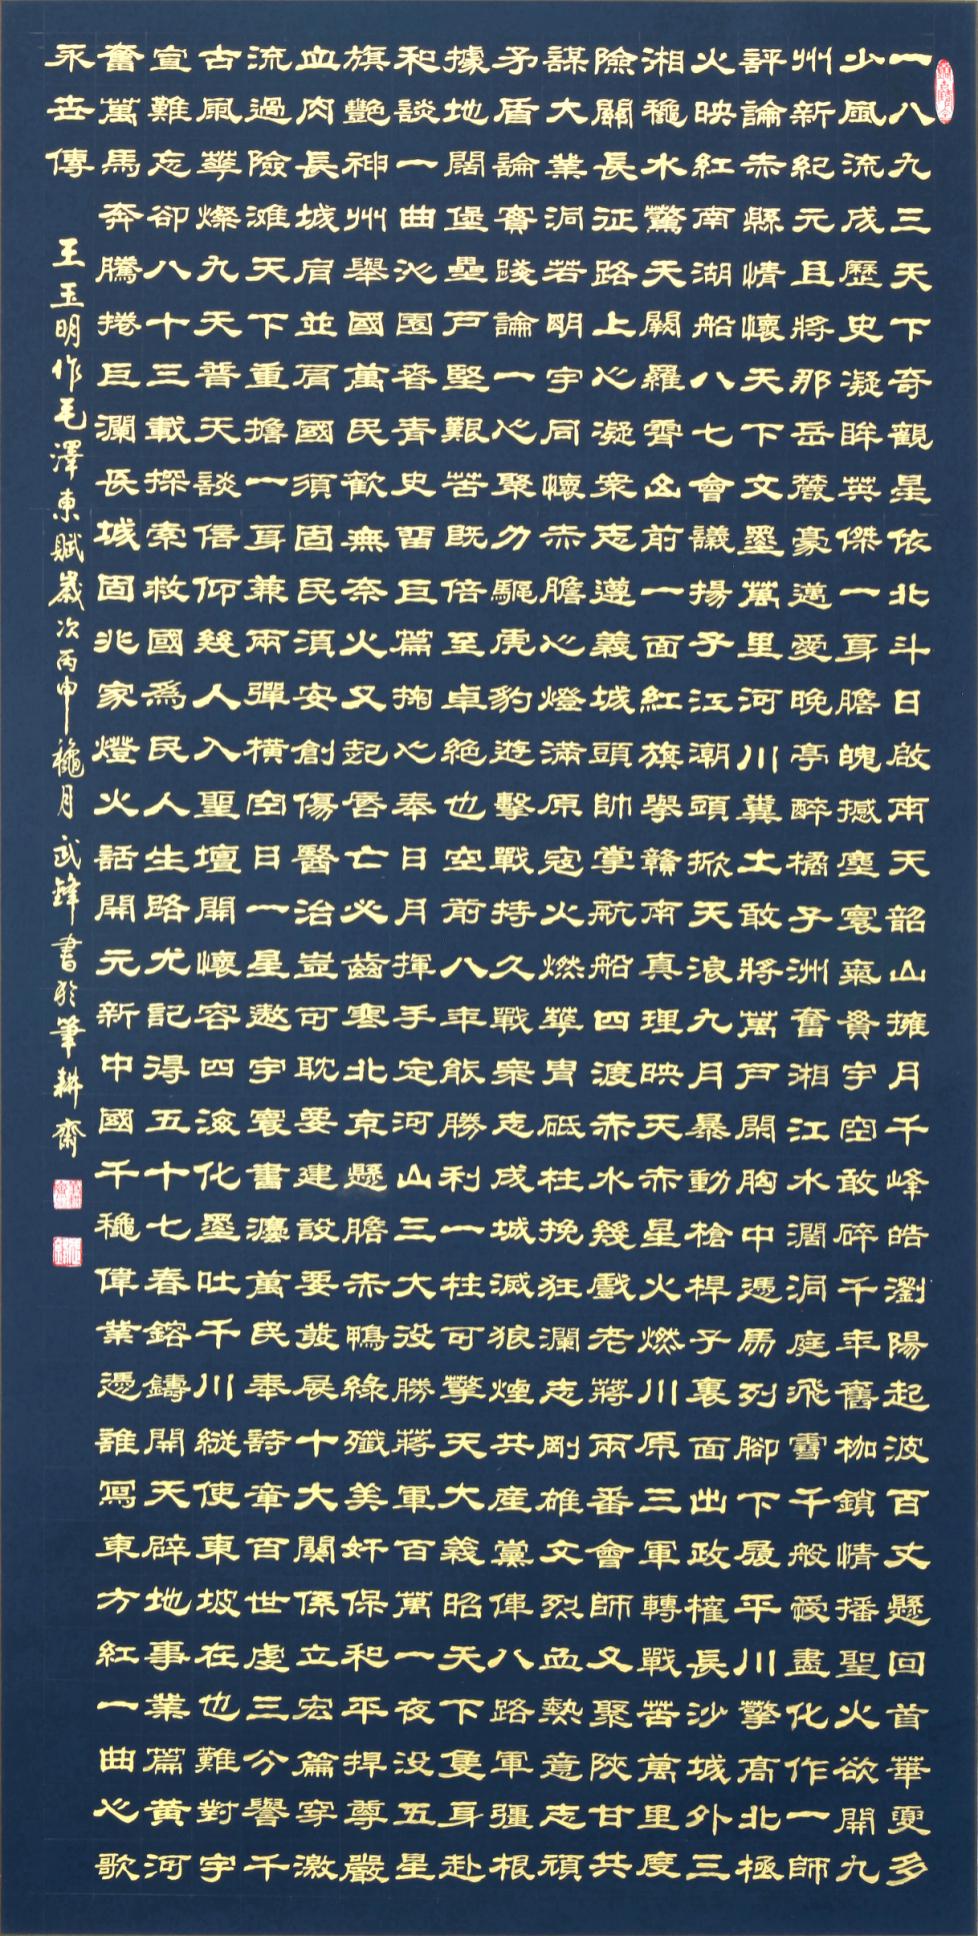 一八九三天下奇觀星依北斗日啟南天韶山擁月千峰皓瀏陽起波百丈懸回首華夏多
少風流成歷史凝眸英傑一身膽魄撼塵寰氣貫宇空敢碎千年舊枷鎖情播聖火欲開九
州新紀元且將那岳麓豪邁愛晚亭醉橘子洲奮湘江水濶洞庭飛雪千般愛盡化作一師
評論赤縣情懷天下文墨萬里河川糞土敢將萬戶閑胸中憑馬列腳下履平川擎高北極
火映紅南湖船八七會議揚子江潮頭掀天浪九月暴動槍桿子裏面出政權長沙城外三
湘龝水驚天闕羅霄山前一面紅旗擧贛南真理映天赤星火燃川原三軍轉戰苦萬里度
險關長征路上心凝案志遵義城頭帥掌舵船四渡赤水幾戲老蔣兩番會師又聚陝甘共
謀大業洞若明宇同懷赤膽心燈滿原寇火燃華胄砥柱挽狂瀾志剛雄文烈血熱意志頑
矛盾論實踐論一心聚力驅虎豹遊擊戰持久戰衆志成城滅狼煙共産黨俥八路軍彊根
據地闊堡壘戶堅艱苦既倍至卓絶也空前八年能勝利一柱可擎天大義昭天下隻身赴
和談一曲沁園春青史留巨篇掬心奉日月揮手定河山三大役勝蔣軍百萬一夜没五星
旗艷神州舉國萬民歡無奈火又起唇亡必齒寒北京懸膽赤鴨綠殲美奸保和平捍尊嚴
血肉長城肩並肩國須固民須安創傷醫治豈可耽要建設要發展十大關係立宏篇穿激
流過險滩天下重擔一肩兼兩彈橫空日一星遨宇寰書瀍萬民奉詩章百世虔三分譽千
古風華燦九天普天談信仰幾人入聖壇開懷容四海化墨吐千川縱使東坡在也難對宇
宣難忘卻八十三載探索救國爲民人生路尤記得五十七春鎔鑄開天辟地事業篇黃河
奮萬馬奔騰捲巨瀾長城固兆家燈火話開元新中國千龝偉業憑誰寫東方紅一曲心歌
永世傳
王玉明作毛澤東賦歲次丙申龝月武鋒書於筆耕齋